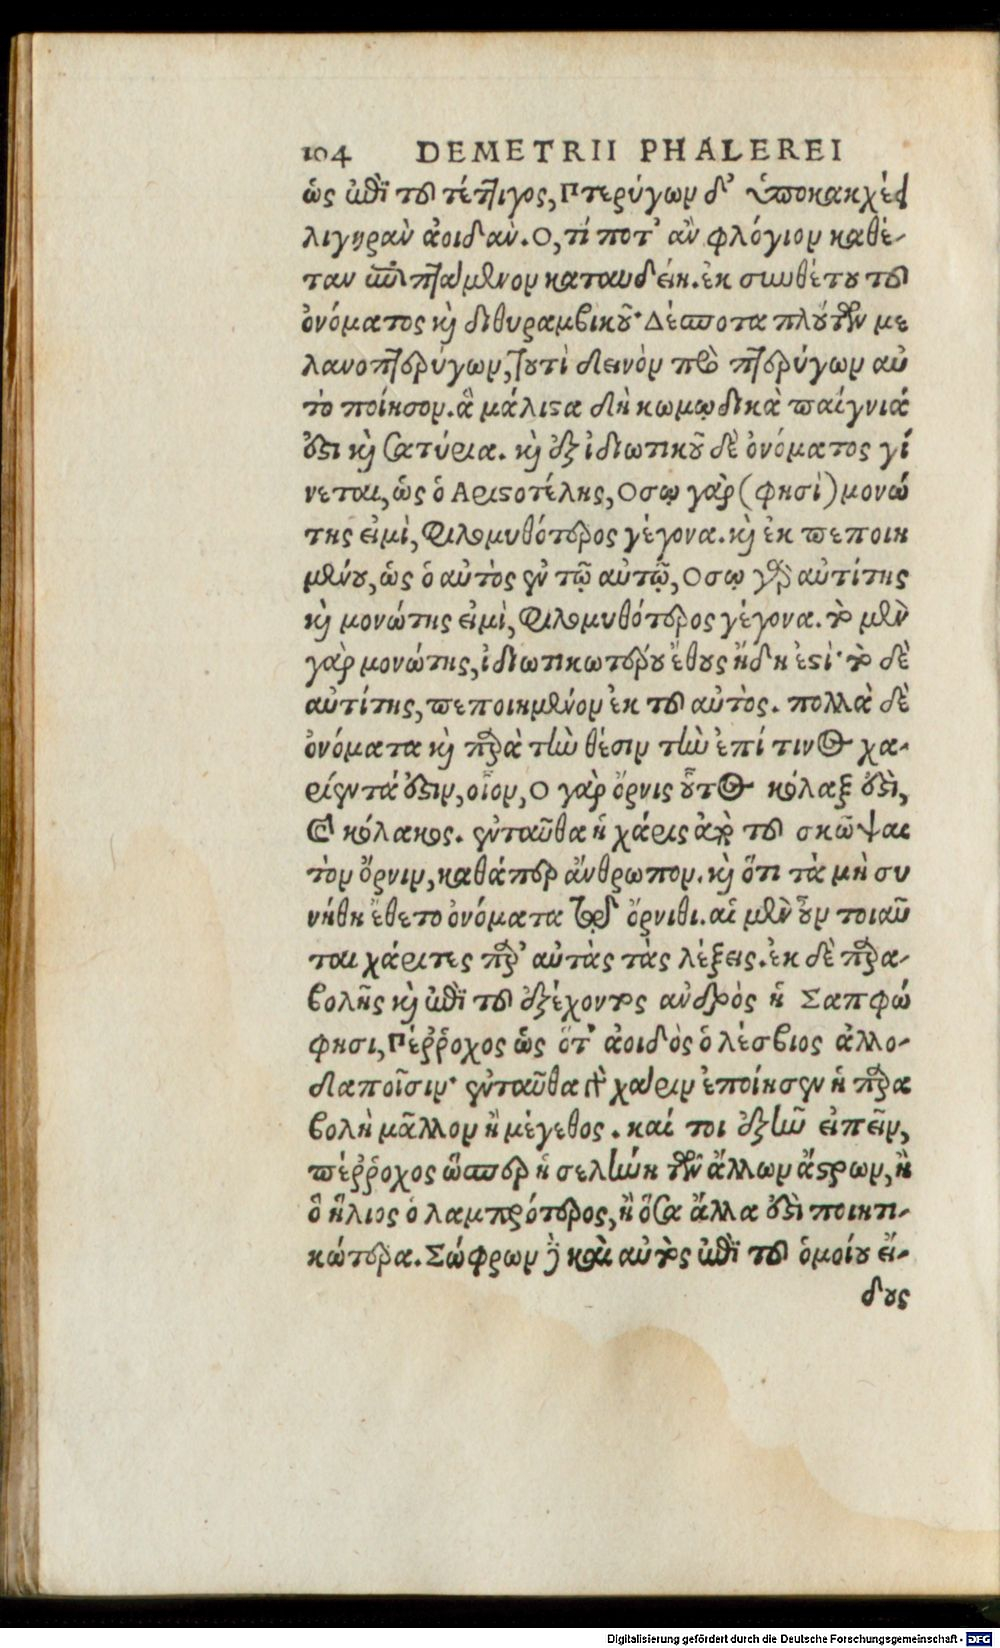 104 DEMETRII PHALEREI
ὡς ἐπὶ τοῦ τέττιγος, Πτερύγων δ' ὑποκακχέει
λιγυρὰν ἀοιδάν. Ο, τί ποτ' ἂν φλόγιον καθέ-
ταν καταυδείη. ἐκ συνθέτου τοῦ
ὀνόματος καὶ διθυραμβικοῦ· Δέσποτα πλούτων με
λανοπτερύγων, τουτὶ δεινὸν πρὸ πτερύγων αὐ
τὸ ποίησον. ἃ μάλιστα δὴ κωμῳδικὰ παίγνιά
ἐστι καὶ σατύρια. καὶ ἐξ ἰδιωτικοῦ δὲ ὀνόματος γί
νεται, ὡς ὁ Αριστοτέλης, Οσῳ γὰρ (φησὶ) μονώ
της εἰμὶ, φιλομυθότερος γέγονα. καὶ ἐκ πεποιη
μένου, ὡς ὁ αὐτὸς ἐν τῷ αὐτῷ, Οσῳ γὰρ αὐτίτης
καὶ μονώτης εἰμὶ, φιλομυθότερος γέγονα. τὸ μὲν
γὰρ μονώτης, ἰδιωτικωτέρου ἔθους ἤδη ἐστί· τὸ δὲ
αὐτίτης, πεποιημένον ἐκ τοῦ αὐτὸς. πολλὰ δὲ
ὀνόματα καὶ παρὰ τὴν θέσιν τὴν ἐπί τινος χα-
ρίεντά ἐστιν, οἷον, Ο γὰρ ὄρνις οὗτος κόλαξ ἐστὶ,
καὶ κόλακος. ἐνταῦθα ἡ χάρις ἀπὸ τοῦ σκῶψαι
τὸν ὄρνιν, καθάπερ ἄνθρωπον. καὶ ὅτι τὰ μὴ συ
νήθη ἔθετο ὀνόματα τῷ ὄρνιθι. αἱ μὲν οὖν τοιαῦ
ται χάριτες παρ' αὐτὰς τὰς λέξεις. ἐκ δὲ παρα-
βολῆς καὶ ἐπὶ τοῦ ἐξέχοντος ἀνδρὸς ἡ Σαπφώ
φησι, Πέῤῥοχος ὡς ὅτ' ἀοιδὸς ὁ λέσβιος ἀλλο-
δαποῖσιν· ἐνταῦθα γὰρ χάριν ἐποίησεν ἡ παρα
βολὴ μᾶλλον ἢ μέγεθος. καί τοι ἐξῆν εἰπεῖν,
πέῤῥοχος ὥσπερ ἡ σελήνη τῶν ἄλλων ἄστρων, ἢ
ὁ ἥλιος ὁ λαμπρότερος, ἢ ὅσα ἄλλα ἐστὶ ποιητι-
κώτερα. Σώφρων δὲ καὶ αὐτὸς ἐπὶ τοῦ ὁμοίου εἴ-
δους
Digitalisierung gefördert durch die Deutsche Forschungsgemeinschaft - DFG